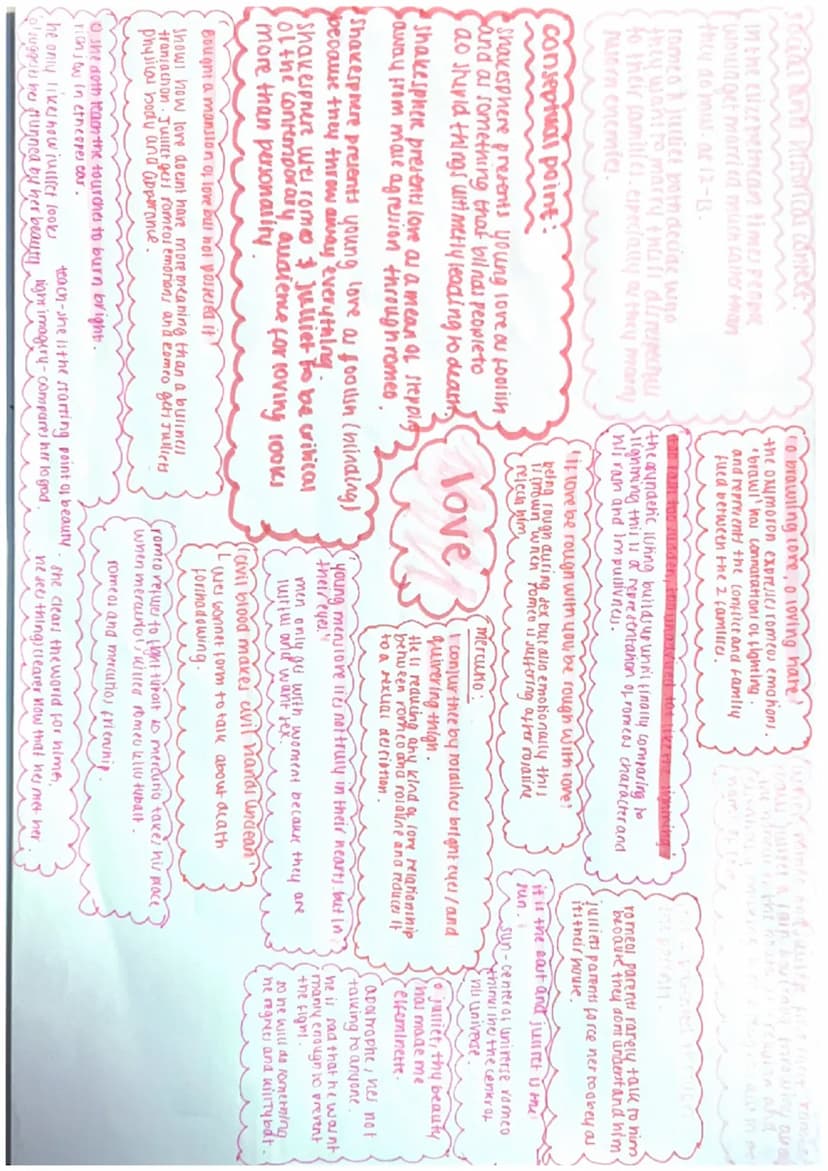 social and historical context:
in the elizabethan times people
younger married even earlier than
they do now. at 12-13.
romeo & julliet both decide who
they want to marry this is disrespectful
to their families, especially as they marry
their enemies.
conseptual point:
shakesphere presents young love as foolish
and as something that blinds people to
do stupid things ultimetly leading to death
shakesphere presents love as a mean of stepping
away from male agression through romeo.
shakesphere presents young love as foolish (blinding)
because they throw away everything.
shakespere uses romeo & julliet to be critical
of the contemporary audience for loving looks
more than personality.
bought a mansion of love but not possessed it
show how love doesnt have more meaning than a business
transaction. julliet gets romeos emotions and romeo gets julliets
physical body and apperance.
o she doth teach the tourches to burn bright.
rich jewel in ethiopes ear.
he only likes how julliet looks
suggests hes stunned by her beauty
teach-she is the starting point of beauty
light imagery- compares her to god.
she clears the world for him.
he sees things clearer now that hes met her.
love
o brawling love, o loving hate
the oxymoron expresses romeos emotions.
brawl has connotations of fighting.
and represents the conflict and family
fued between the 2 families.
the asyndetic listing builds up until finally comparing to
lightning this is a representation of romeos character and
his rash and impulsivness.
if love be rough with you, be rough with love
being rough during sex but also emotionally this
is shown when romeo is suffering after rosaline
rejects him
mercutio:
I conjur thee by rosalines bright eyes/and
quivering thigh.
He is reducing any kind of love relationship
between romeo and rosaline and reduces it
to a sexual desription.
young mens love lies not truly in their hearts but in
their eyes.
men only go with women because they are
lustful and want sex.
civil blood makes civil hands unclean
uses sonnet form to talk about death
forshadowing.
romeo refuses to fight tibalt so mercutio takes his place
when mercutio is killed romeo kills tybalt.
romeos and mercutios friendship.
romeos parents rarely talk to him
because they dont understand him
julliets parents force her to obey as
its their house.
it is the east and julliet is the
sun.
sun-center of universe romeo
thinks shes the center of
his universe.
o julliet, thy beauty
has made me
effeminette.
apostrophe, hes not
talking to anyone.
he is sad that he wasnt
manly enough to prevent
the fight.
so he will do something
he regrets and kill tybalt.